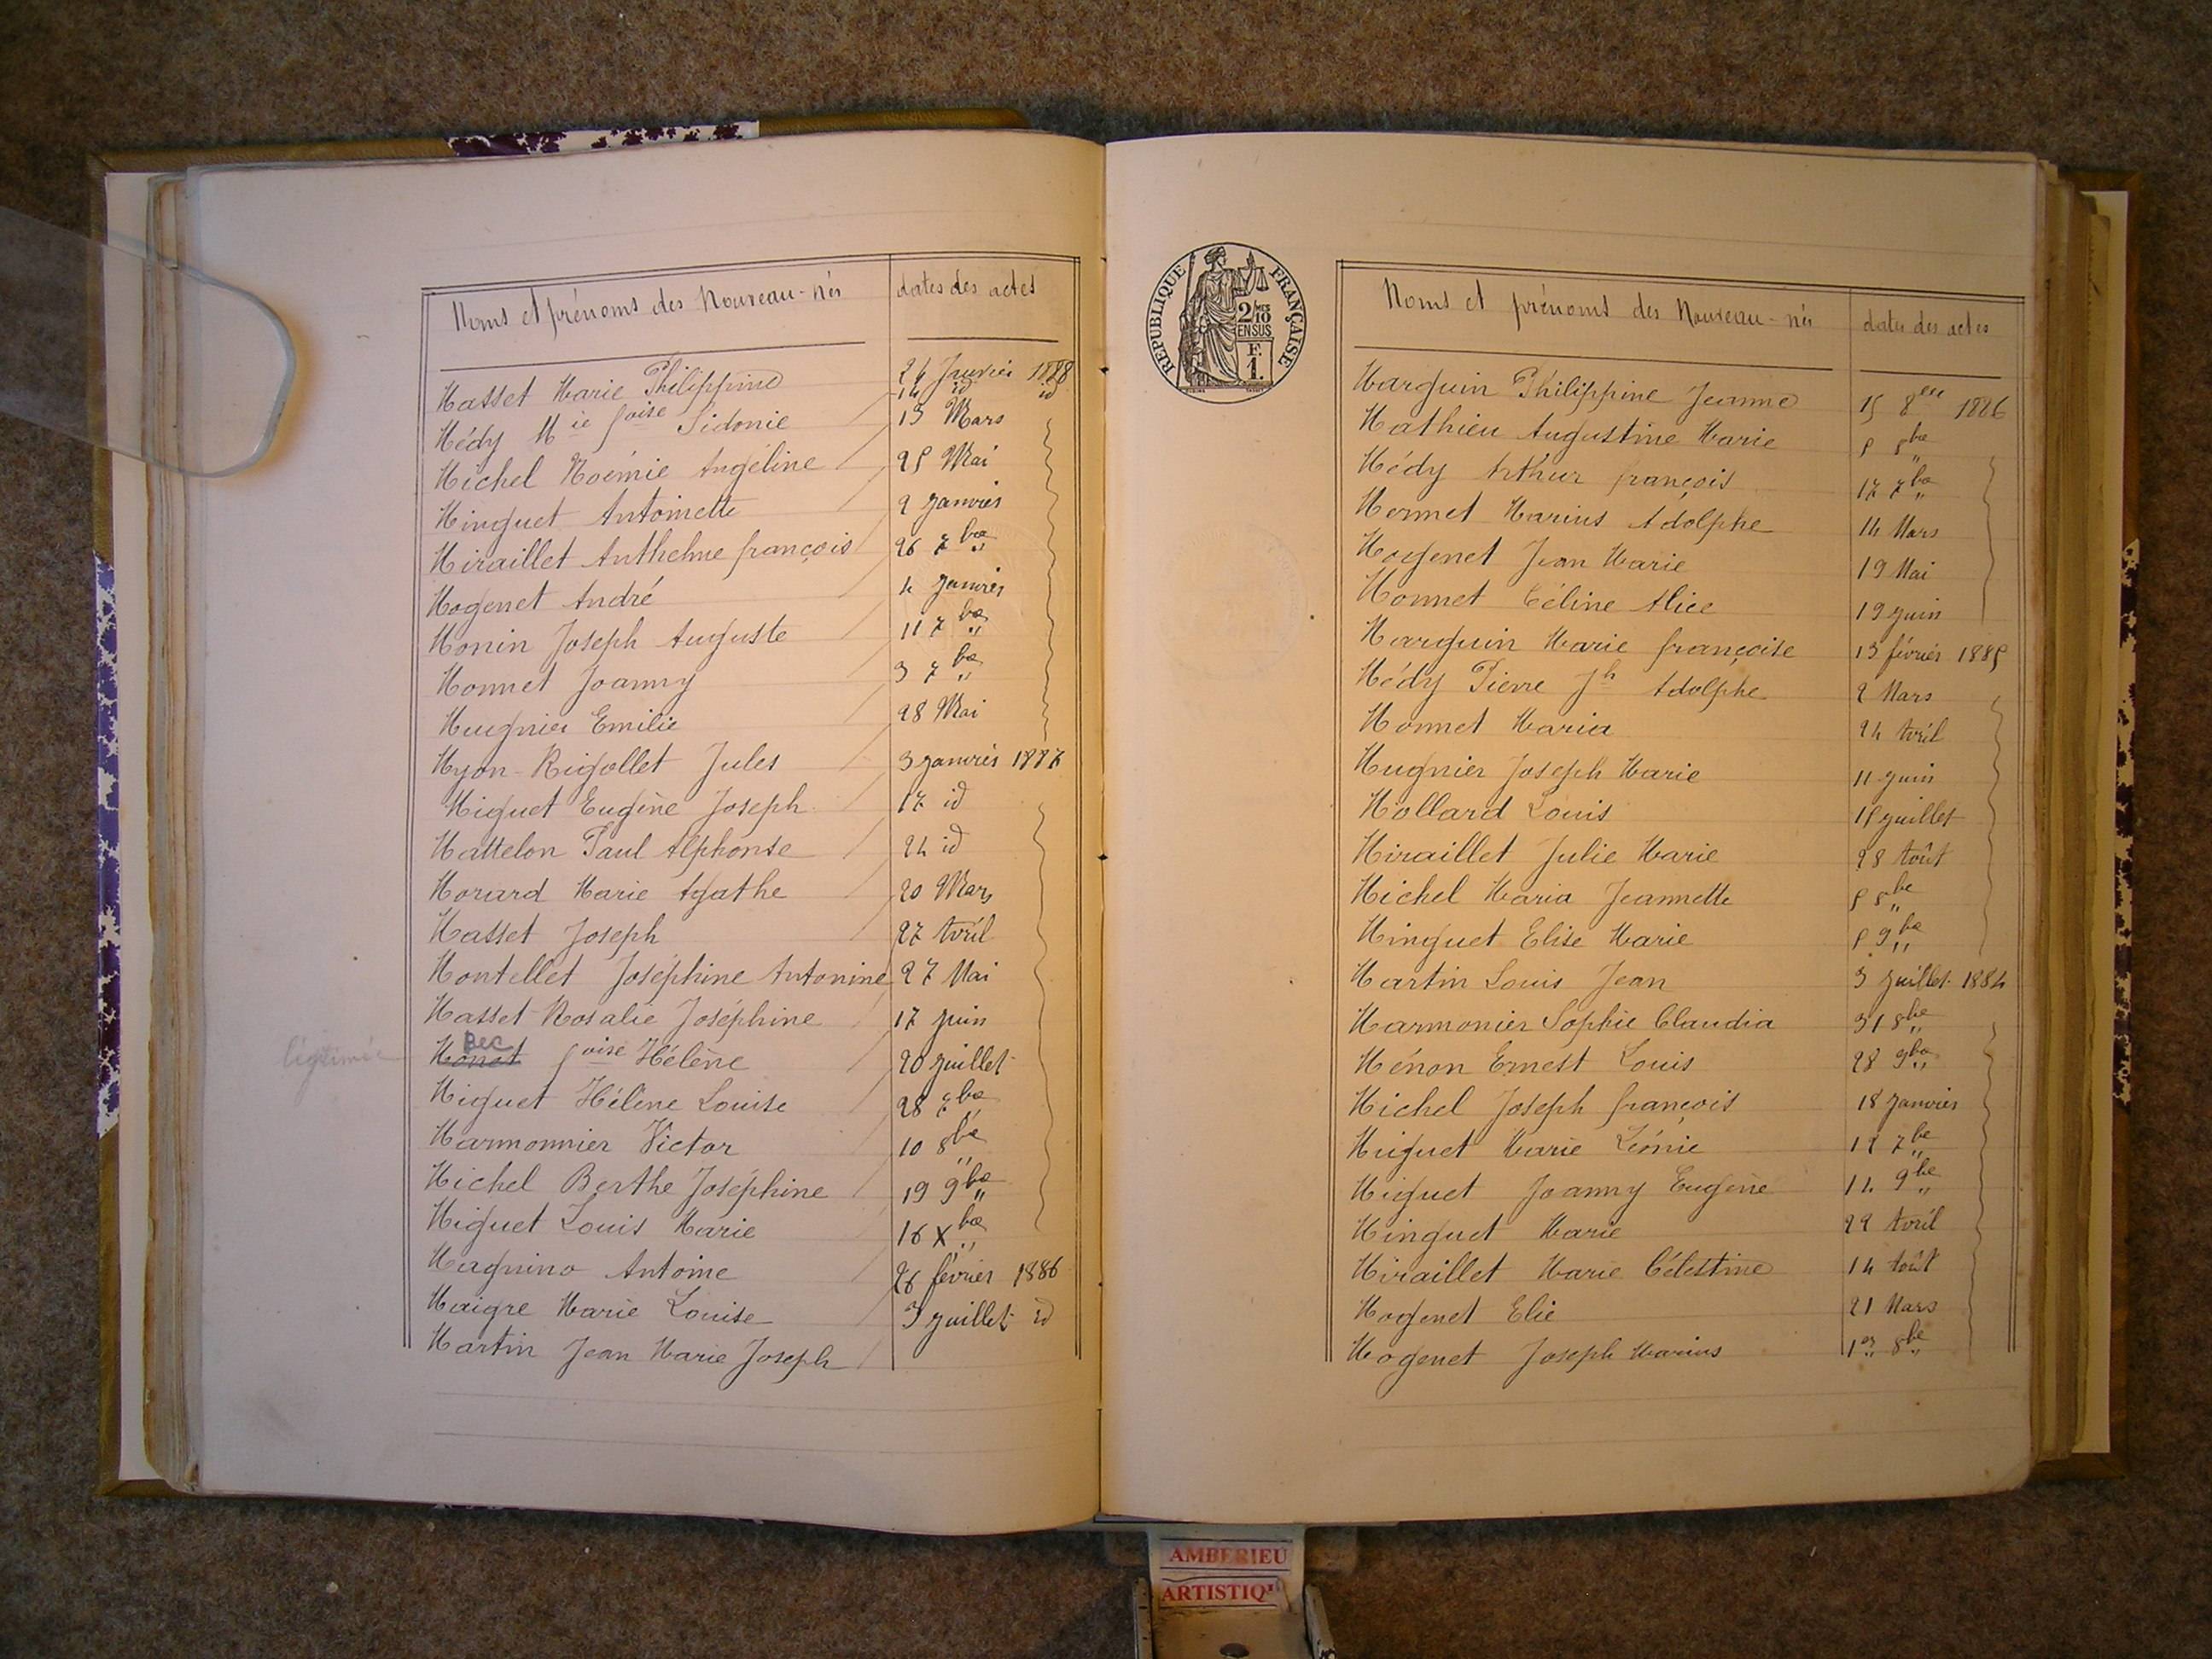 Noms et prénoms des Nouveau-nés dates des actes
Masset Marie Philippine 24 Janvier 1888
Médy Mie foise Sidonie 14 id id
Michel Noémie Angéline 13 Mars
Minguet Antoinette 25 Mai
Miraillet Anthelme françois 2 janvier
Mogenet André 26 7bre
Monin Joseph Auguste 4 janvier
Monnet Joanny 11 7bre
Mugnier Emilie 3 7bre
Myon-Rigollet Jules 28 Mai
Miguet Eugène Joseph 3 janvier 1887
Mattelon Paul Alphonse 17 id
Morard Marie Agathe 24 id
Masset Joseph 20 Mars
Montellet Joséphine Antonine 27 Avril
Masset Rosalie Joséphine 27 Mai
légitimée Monat Bec foise Hélène 17 juin
Miguet Hélène Louise 20 juillet
Marmonnier Victor 28 7bre
Michel Berthe Joséphine 10 8bre
Miguet Louis Marie 19 9bre
Magnino Antoine 16 Xbre
Maigre Marie Louise 26 février 1886
Martin Jean Marie Joseph 3 juillet id
RÉPUBLIQUE FRANÇAISE
2/10
EN SUS
F.
1.
Noms et prénoms des Nouveau-nés dates des actes
Marguin Philippine Jeanne 15 8bre 1886
Mathieu Augustine Marie 5 8bre
Médy Arthur françois 17 7bre
Monnet Marius Adolphe 14 Mars
Mogenet Jean Marie 19 Mai
Monnet Céline Alice 19 juin
Marguin Marie françoise 13 février 1885
Médy Pierre Jh Adolphe 2 Mars
Monnet Maria 24 Avril
Mugnier Joseph Marie 11 juin
Mollard Louis 15 juillet
Miraillet Julie Marie 28 Août
Michel Maria Jeannette 5 8bre
Minguet Elise Marie 5 9bre
Martin Louis Jean 3 juillet 1884
Marmonier Sophie Claudia 31 8bre
Ménon Ernest Louis 28 9bre
Michel Joseph françois 18 janvier
Miguet Marie Léonie 12 7bre
Miguet Joanny Eugène 14 9bre
Minguet Marie 22 Avril
Miraillet Marie Célestine 14 Août
Mogenet Elie 21 Mars
Mogenet Joseph Marius 1er 8bre
AMBERIEU
ARTISTIQ